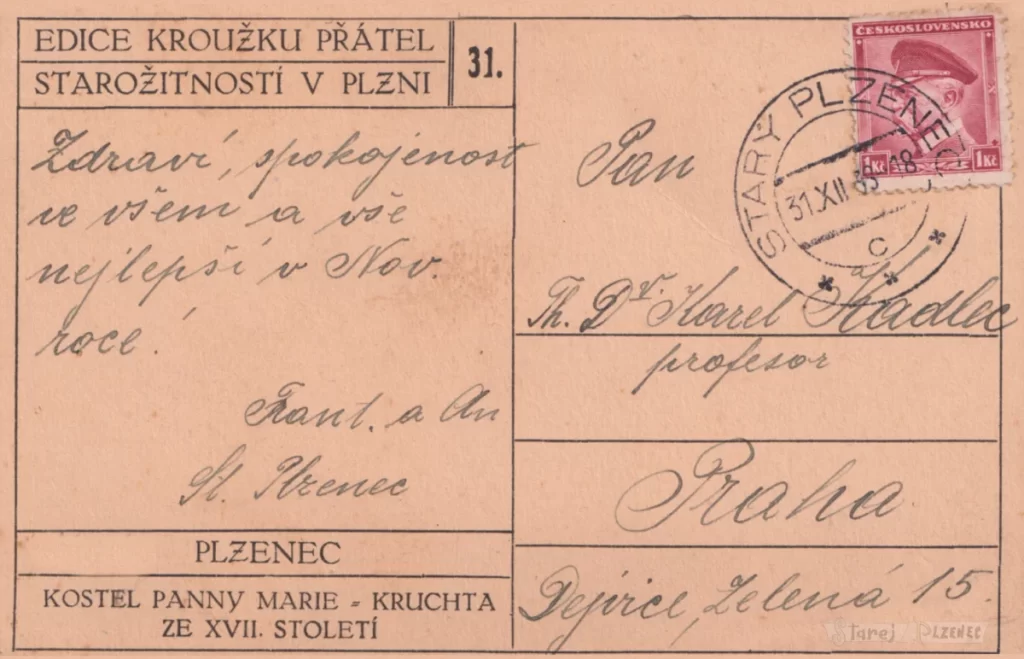 EDICE KROUŽKU PŘÁTEL
STAROŽITNOSTÍ V PLZNI
31.
Zdraví, spokojenost
ve všem a vše
nejlepší v Nov.
roce.
Frant. a An
St. Plzenec
PLZENEC
KOSTEL PANNY MARIE - KRUCHTA
ZE XVII. STOLETÍ
ČESKOSLOVENSKO
1 Kč 1 Kč
STARÝ PLZENEC
31.XII 18
C
Pan
Th. Dr. Karel Kadlec
profesor
Praha
Dejvice, Zelená 15.
Starej PLZENEC